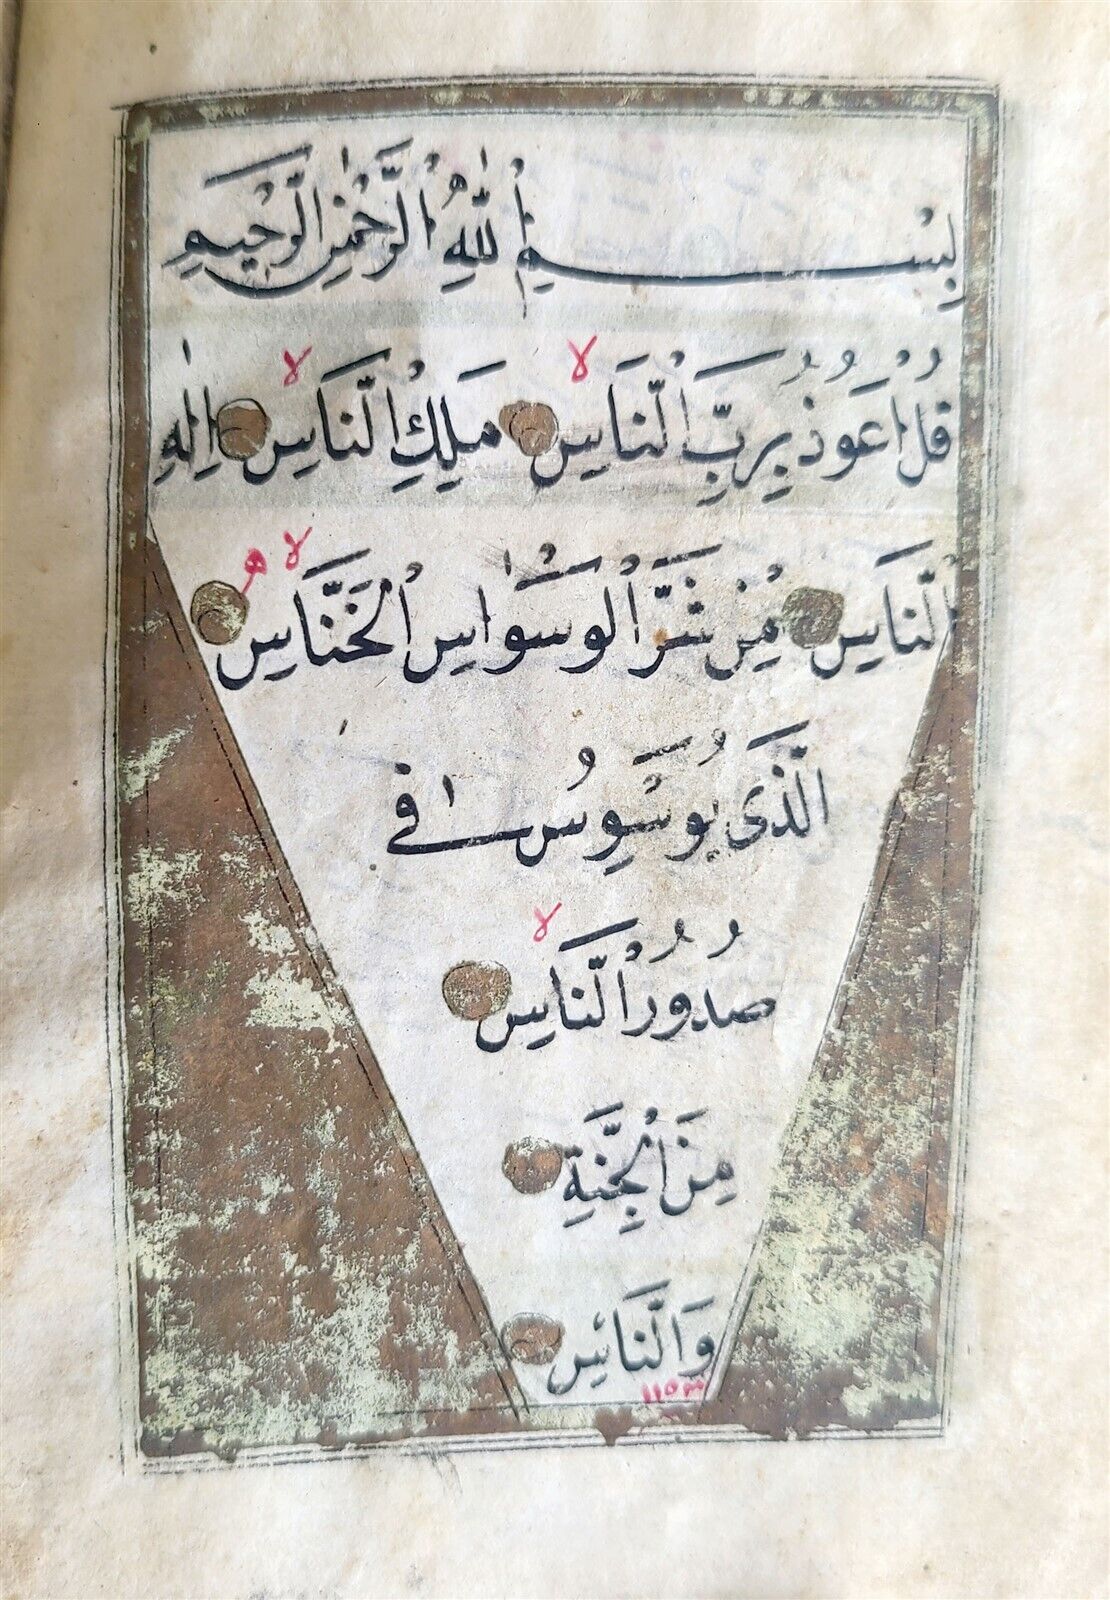 بِسْمِ اللّٰهِ الرَّحْمٰنِ الرَّحِيمِ
قُلْ اَعُوذُ بِرَبِّ النَّاسِ لا مَلِكِ النَّاسِ لا اِلٰهِ
النَّاسِ مِنْ شَرِّ الْوَسْوَاسِ الْخَنَّاسِ لا
الَّذٖى يُوَسْوِسُ فٖى
صُدُورِ النَّاسِ لا
مِنَ الْجِنَّةِ
وَالنَّاسِ
١١٥٣